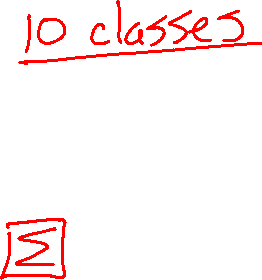 10 classes
Σ